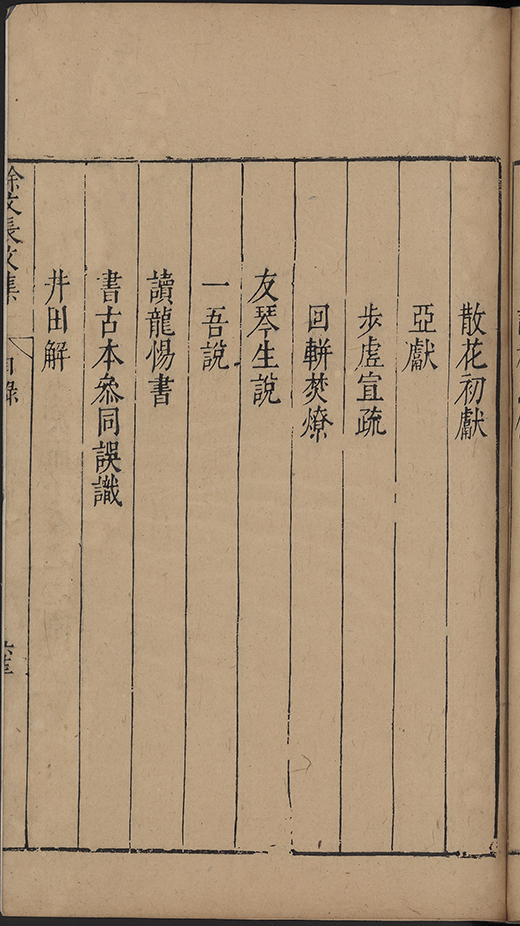 散花初獻
亞獻
步虛宣疏
回輧焚燎
友琴生說
一吾說
讀龍惕書
書古本叅同誤識
井田解
徐文長文集
目錄